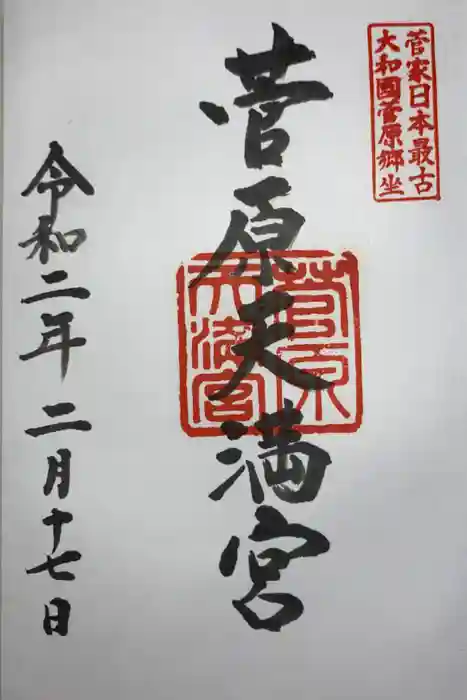 菅家日本最古
大和國菅原郷坐
菅原天満宮
菅原
天満宮
令和二年 二月十七日